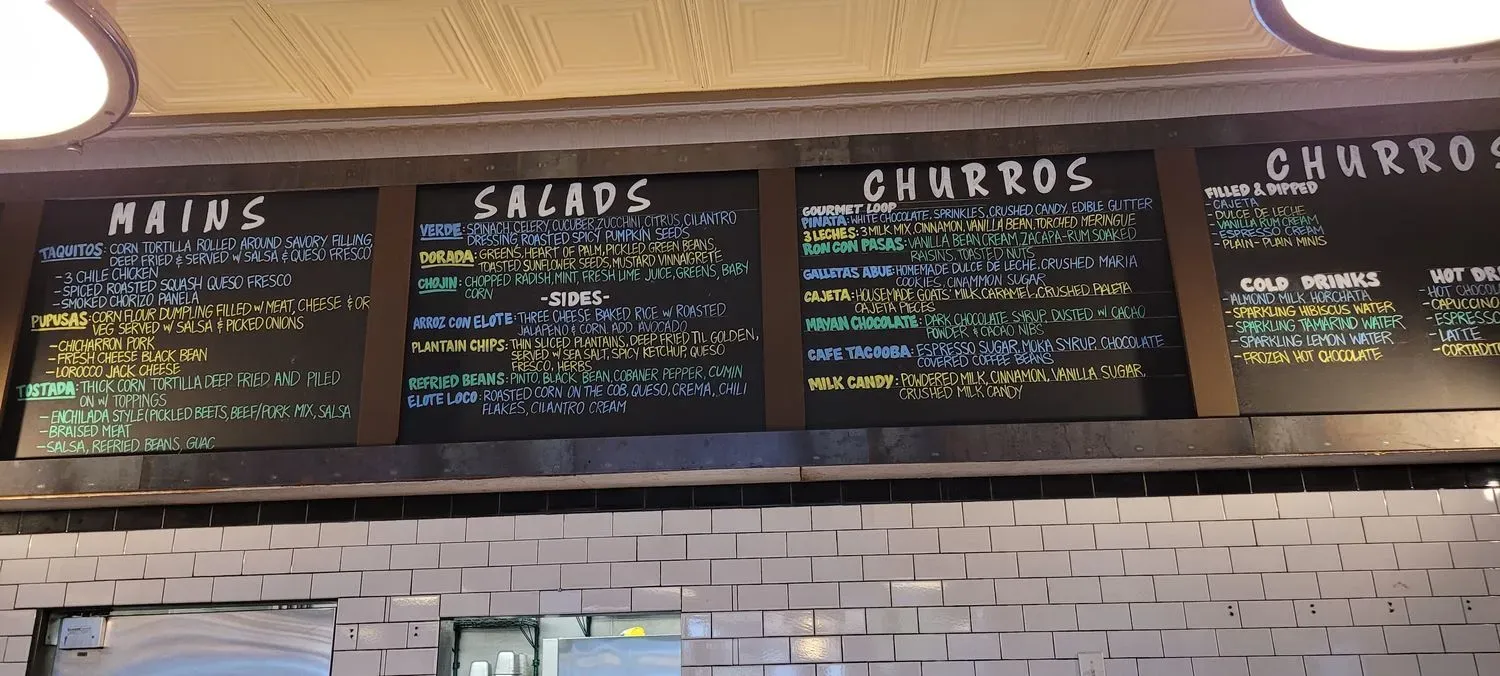 MAINS
TAQUITOS: CORN TORTILLA ROLLED AROUND SAVORY FILLING,
DEEP FRIED & SERVED W/ SALSA & QUESO FRESCO
-3 CHILE CHICKEN
-SPICED ROASTED SQUASH QUESO FRESCO
-SMOKED CHORIZO PANELA
PUPUSAS: CORN FLOUR DUMPLING FILLED W/ MEAT, CHEESE & OR
VEG SERVED W/ SALSA & PICKED ONIONS
-CHICHARRON PORK
-FRESH CHEESE BLACK BEAN
-LOROCCO JACK CHEESE
TOSTADA: THICK CORN TORTILLA DEEP FRIED AND PILED
ON W/ TOPPINGS
-ENCHILADA STYLE (PICKLED BEETS, BEEF/PORK MIX, SALSA
-BRAISED MEAT
-SALSA, REFRIED BEANS, GUAC
SALADS
VERDE: SPINACH, CELERY, CUCUBER, ZUCCHINI CITRUS, CILANTRO
DRESSING, ROASTED SPICY PUMPKIN SEEDS
DORADA: GREENS, HEART OF PALM, PICKLED GREEN BEANS,
TOASTED SUNFLOWER SEEDS, MUSTARD VINNAIGRETE
CHOJIN: CHOPPED RADISH, MINT, FRESH LIME JUICE, GREENS, BABY
CORN
-SIDES-
ARROZ CON ELOTE: THREE CHEESE BAKED RICE W/ ROASTED
JALAPEÑO & CORN. ADD AVOCADO
PLANTAIN CHIPS: THIN SLICED PLANTAINS, DEEP FRIED TIL GOLDEN,
SERVED W/ SEA SALT, SPICY KETCHUP, QUESO
FRESCO, HERBS
REFRIED BEANS: PINTO, BLACK BEAN, COBANER PEPPER, CUMIN
ELOTE LOCO: ROASTED CORN ON THE COB, QUESO, CREMA, CHILI
FLAKES, CILANTRO CREAM
CHURROS
GOURMET LOOP
PINATA: WHITE CHOCOLATE, SPRINKLES, CRUSHED CANDY, EDIBLE GLITTER
3 LECHES: 3 MILK MIX, CINNAMON, VANILLA BEAN, TORCHED MERINGUE
RON CON PASAS: VANILLA BEAN CREAM, ZACAPA-RUM SOAKED
RAISINS, TOASTED NUTS
GALLETAS ABUE: HOMEMADE DULCE DE LECHE, CRUSHED MARIA
COOKIES, CINAMMON SUGAR
CAJETA: HOUSEMADE GOATS' MILK CARAMEL, CRUSHED PALETA
CAJETA PIECES
MAYAN CHOCOLATE: DARK CHOCOLATE SYRUP, DUSTED W/ CACAO
POWDER & CACAO NIBS
CAFE TACOOBA: ESPRESSO SUGAR, MOKA SYRUP, CHOCOLATE
COVERED COFFEE BEANS
MILK CANDY: POWDERED MILK, CINNAMON, VANILLA SUGAR,
CRUSHED MILK CANDY
CHURROS
FILLED & DIPPED
-CAJETA
-DULCE DE LECHE
-VANILLA RUM CREAM
-ESPRESSO CREAM
-PLAIN-PLAIN MINIS
COLD DRINKS
-ALMOND MILK HORCHATA
-SPARKLING HIBISCUS WATER
-SPARKLING TAMARIND WATER
-SPARKLING LEMON WATER
-FROZEN HOT CHOCOLATE
HOT DR
-HOT CHOCOL
-CAPUCCINO
-ESPRESSO
-LATTE
-CORTADIT